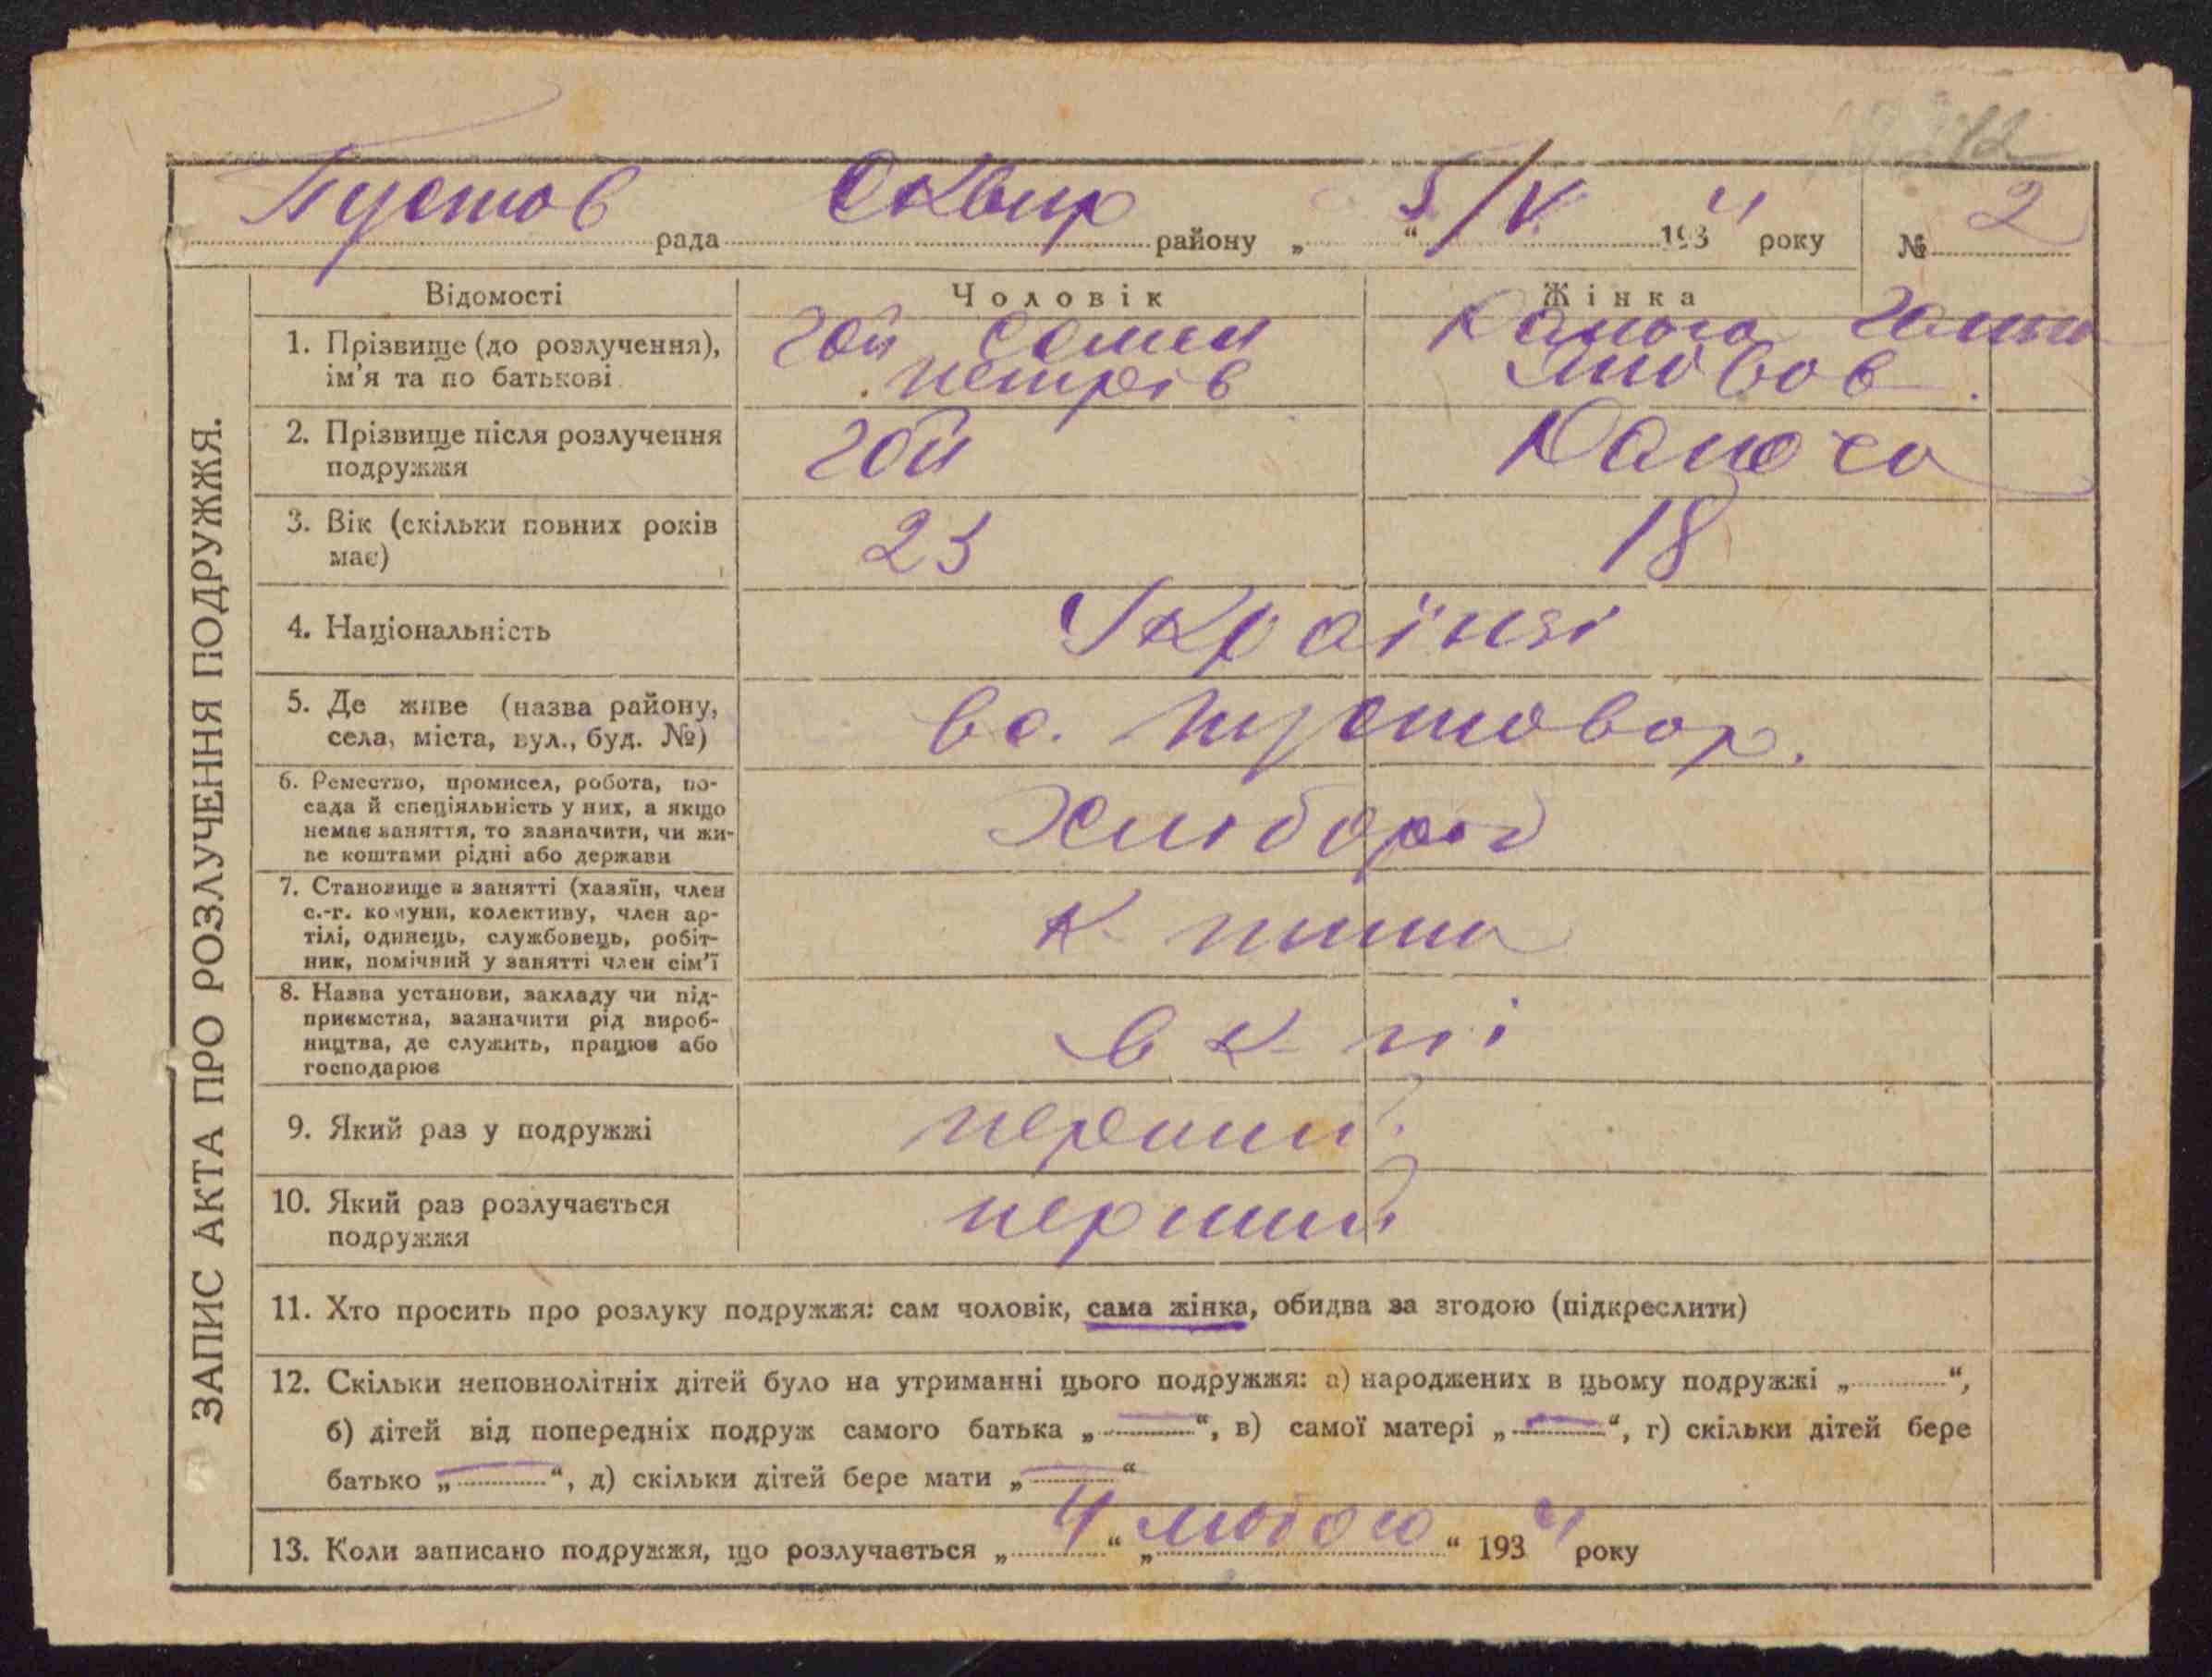 Пустов рада Сквир району „ 5 “ / V. 1934 року № 2
ЗАПИС АКТА ПРО РОЗЛУЧЕННЯ ПОДРУЖЖЯ.
Відомості Чоловік Жінка
1. Прізвище (до розлучення), ім'я та по батькові
Гой Семен
Петрів
2. Прізвище після розлучення подружжя
Гой
3. Вік (скільки повних років має)
23 18
4. Національність
Українзі
5. Де живе (назва району, села, міста, вул., буд. №)
в с. Пустовар.
6. Ремество, промисел, робота, посада й спеціяльність у них, а якщо немає заняття, то зазначити, чи живе коштами рідні або держави
Хлібороб
7. Становище в занятті (хазяїн, член с.-г. комуни, колективу, член артілі, одинець, службовець, робітник, помічний у занятті член сім'ї
к-
8. Назва установи, закладу чи підприємства, зазначити рід виробництва, де служить, працює або господарює
в к-пі
9. Який раз у подружжі
перший
10. Який раз розлучається подружжя
перший
11. Хто просить про розлуку подружжя: сам чоловік, сама жінка, обидва за згодою (підкреслити)
12. Скільки неповнолітніх дітей було на утриманні цього подружжя: а) народжених в цьому подружжі „ “,
б) дітей від попередніх подруж самого батька „—“, в) самої матері „—“, г) скільки дітей бере
батько „—“, д) скільки дітей бере мати „—“
13. Коли записано подружжя, що розлучається „ 4 “ „ лютого “ 1934 року